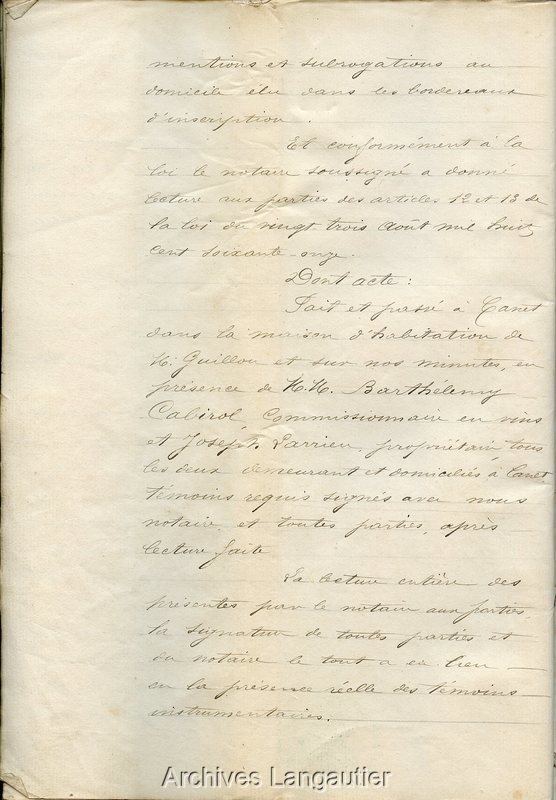 mentions et subrogations au
domicile élu dans les bordereaux
d'inscription.
Et conformément à la
loi le notaire soussigné a donné
lecture aux parties des articles 12 et 13 de
la loi du vingt trois Août mil huit
cent soixante-onze.
Dont acte :
Fait et passé à Canet
dans la maison d'habitation de
M. Guillou et sur nos minutes, en
présence de M.M. Barthélemy
Cabirol, Commissionnaire en vins
et Joseph Larrieu, propriétaire, tous
les deux demeurant et domiciliés à Canet
témoins requis signés avec nous
notaire, et toutes parties, après
lecture faite
La lecture entière des
présentes par le notaire aux parties,
la signature de toutes parties et
du notaire le tout a eu lieu
en la présence réelle des témoins
instrumentaires.
Archives Langautier